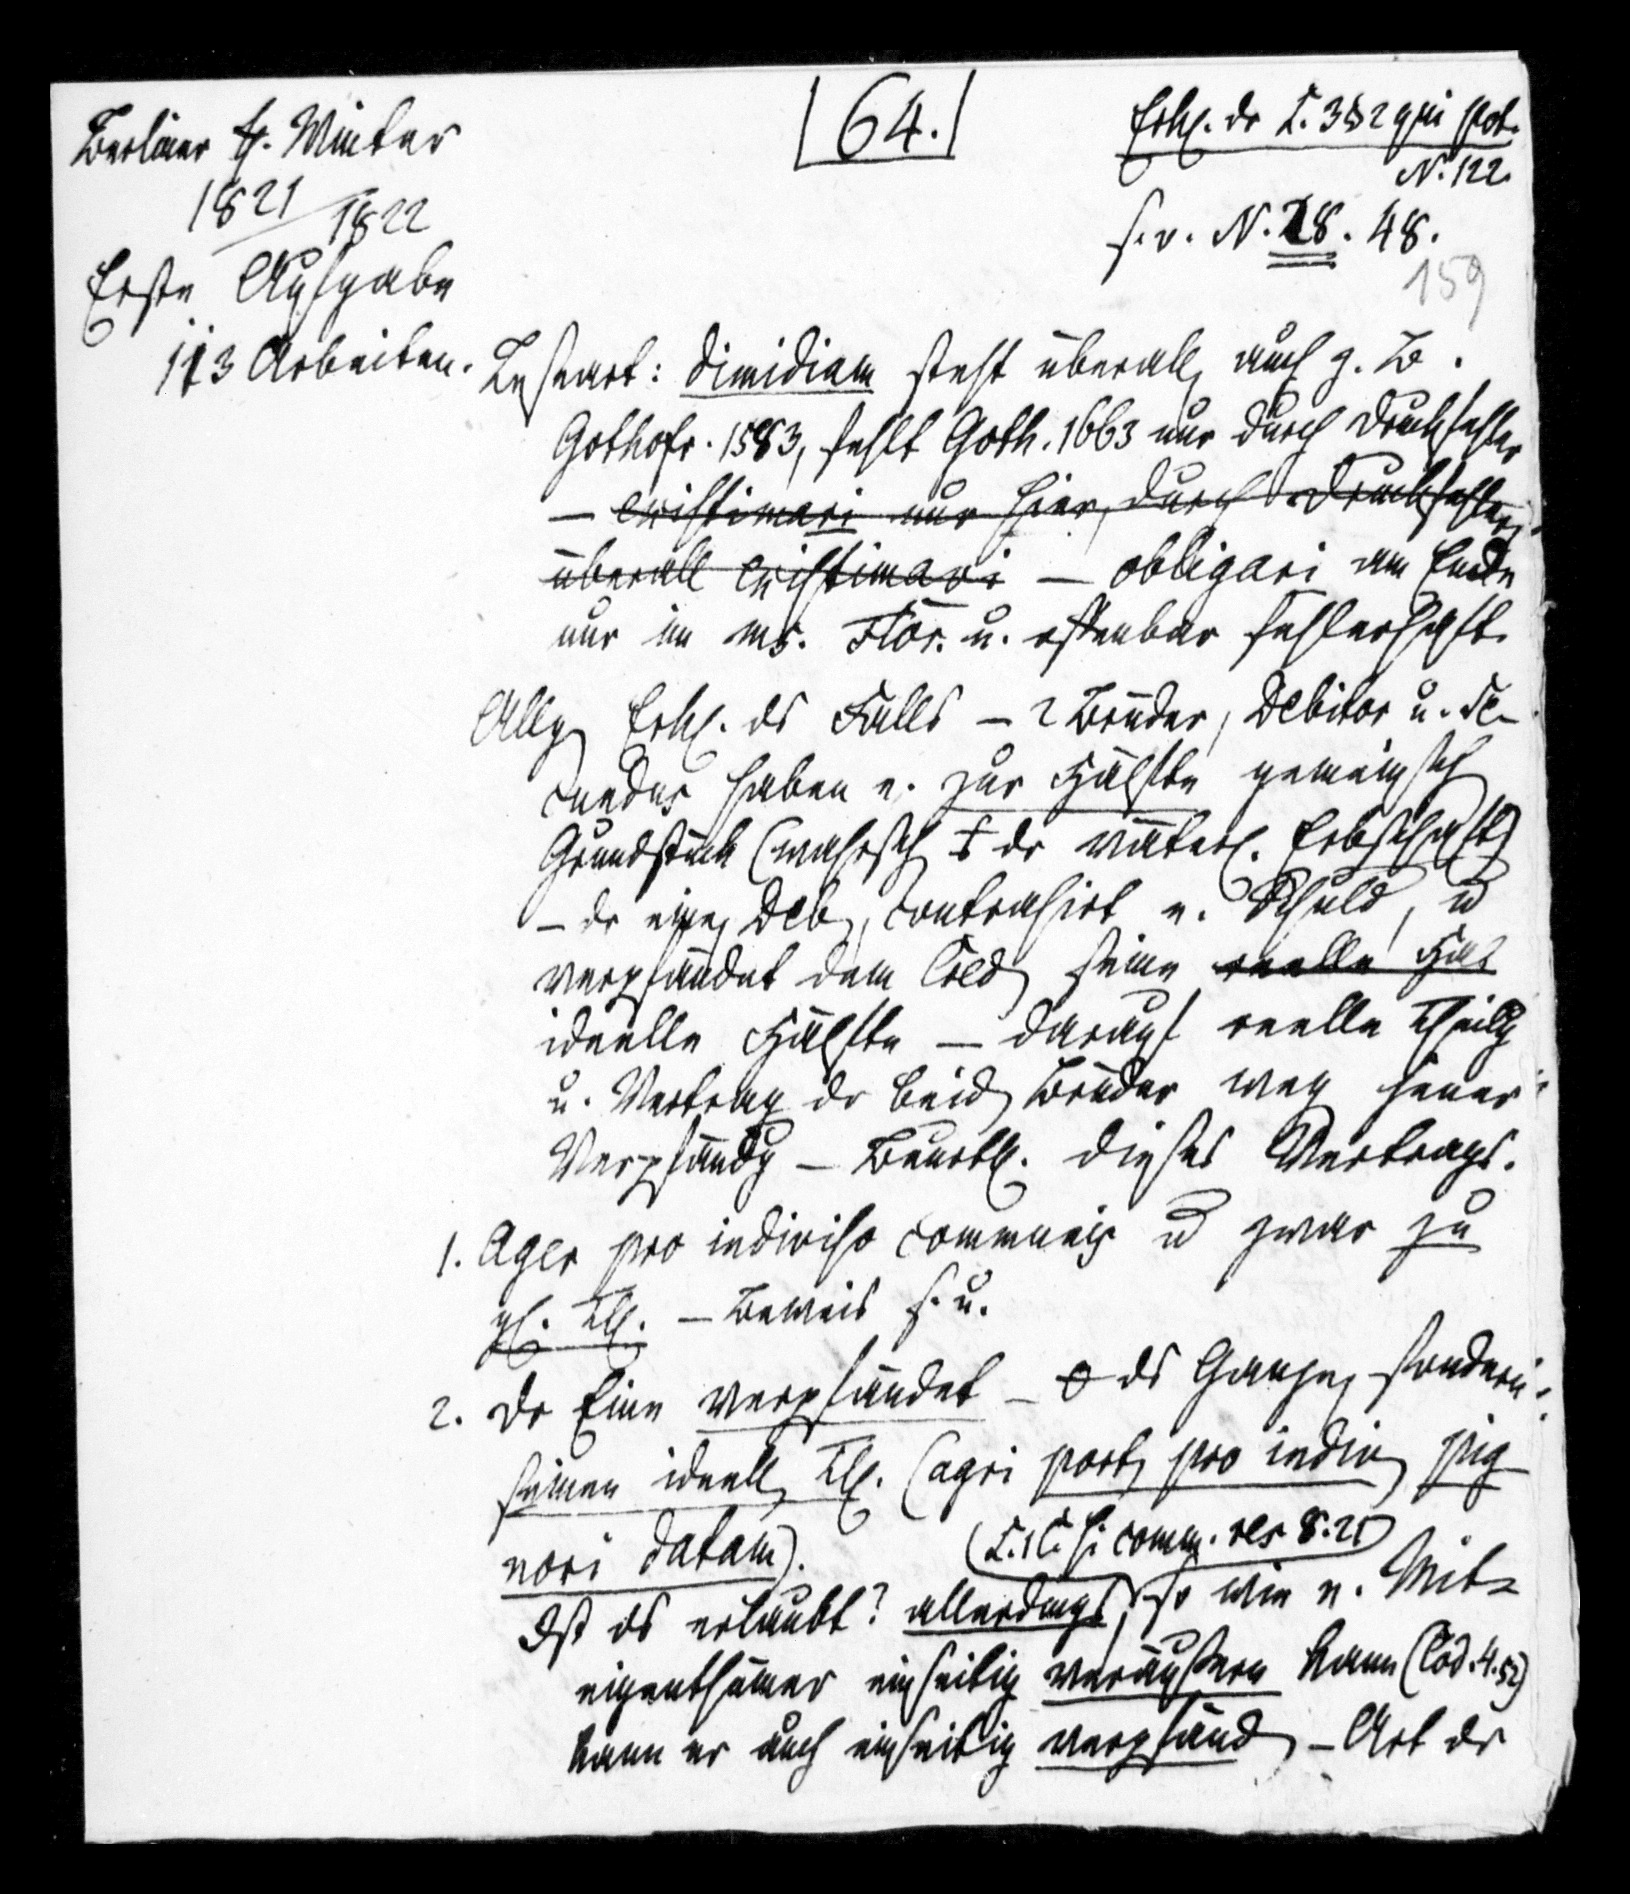 Berliner Winter
1821/1822
Erste Aufgabe
113 Arbeiten.
[64.]
Erkl. dr L. 3 §2 qui pot.
N. 122.
s. v. N. 28. 48.
159
Lesart: dimidiam steht überall, auch z. B.
Gothofr. 1583, fehlt Goth. 1663 nur durch Druckfehler
— existimari nur hier, durch Druckfehler,
überall existimavi — obligari am Ende
nur im ms. Flor. u. offenbar fehlerhaft.
Allg. Erkl. ds Falls — 2 Brüder, Debitor u. Se-
cundus haben e. zur Hälfte gemeinsch
Grundstück (wahrsch dr väterl. Erbschaft)
— dr eine, Deb, contrahirt e. Schuld, u
verpfändet dem Cred seine reelle Hä
ideelle Hälfte — darauf reelle Theilg
u. Vertrag dr beid Brüder weg jener
Verpfändg — Beurtl. dieses Vertrags.
1. Ager pro indiviso communis u zwar zu
gl. Thl. — Beweis s. u.
2. Dr Eine verpfändet — 0 ds Ganze, sondern
seinen ideell Thl. (agri part pro indiv pig
nori datam).
(L. 1 C. si comm. res 8. 21)
Ist ds erlaubt? allerdings, so wie e. Mit-
eigenthümer einseitig veräußern kann (Cod. 4. 52)
kann er auch einseitig verpfänd — Art dr